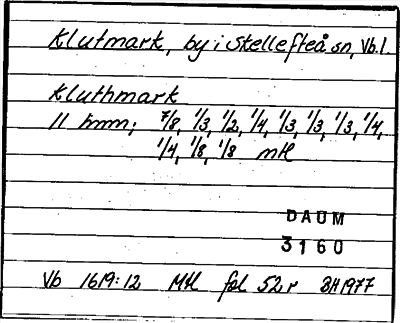 Klutmark, by i Skellefteå sn, Vb.l
Kluthmark
11 hmm; 7/8, 1/3, 1/2, 1/4, 1/3, 1/3, 1/3, 1/4,
1/4, 1/8, 1/8 mtl
DAUM
3160
Vb 1619:12 Mtl fol 52r BH 1977